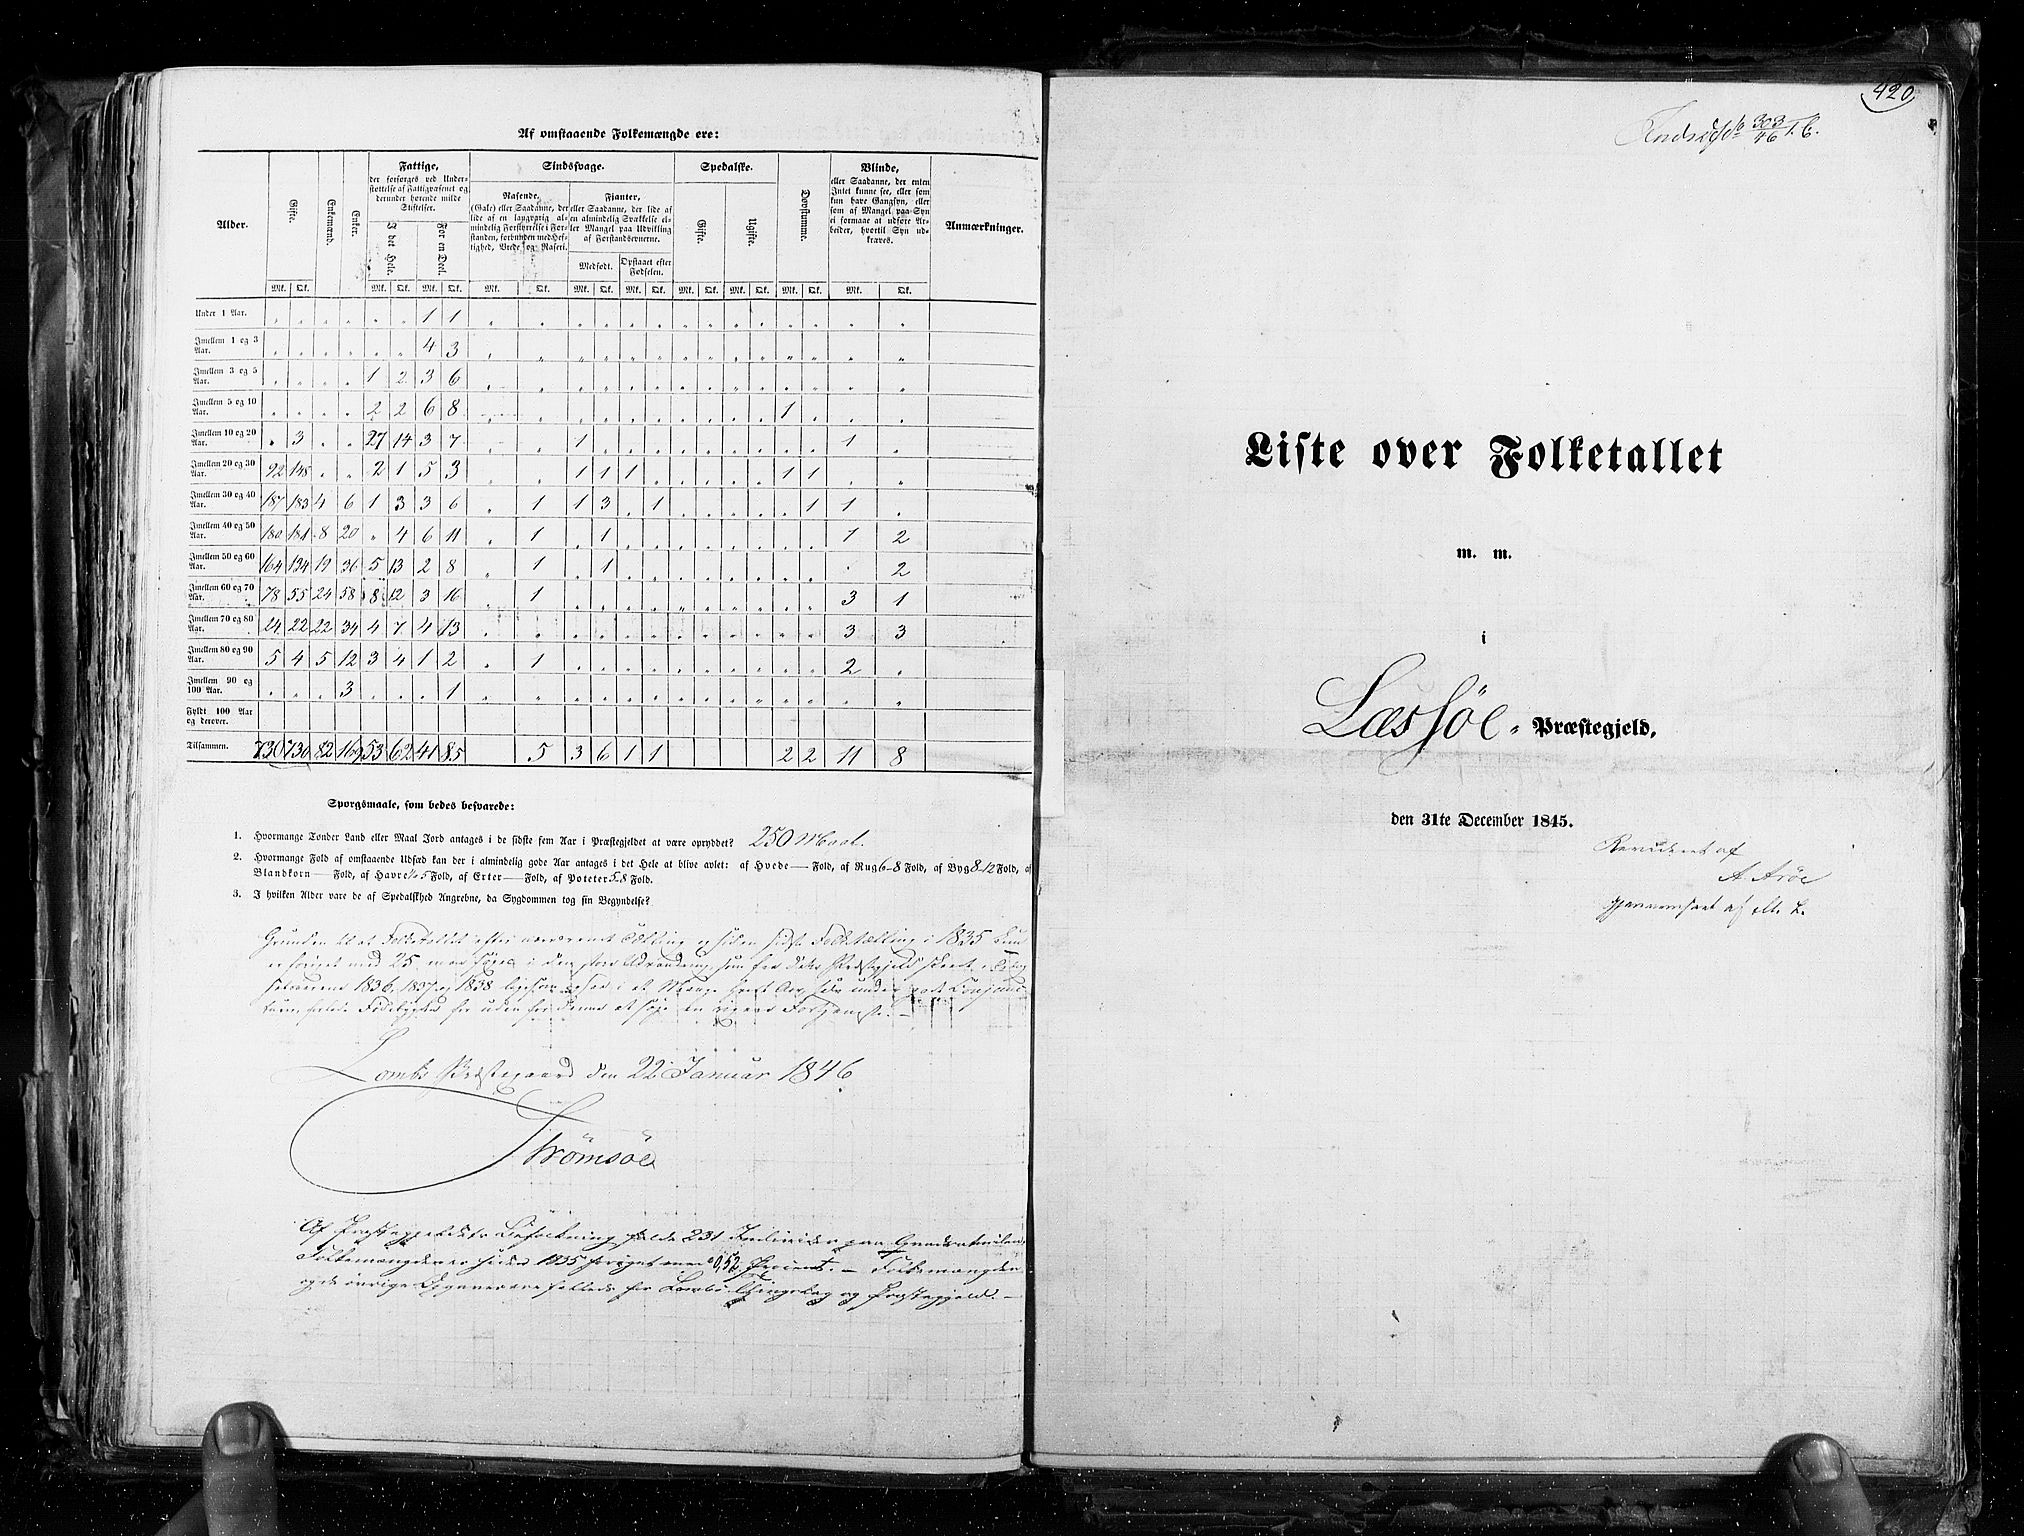 Af omstaaende Folkemængde ere:
Alder. Gifte. Enkemænd. Enker. Fattige, der forsørges ved Understøttelse af Fattigvæsenet og derunder hørende milde Stiftelser. Sindssvage. Spedalske. Døvstumme. Blinde, eller Saadanne, der enten Intet kunne see, eller som kun have Gangsyn, eller som af Mangel paa Syn ei formaae at udføre Arbeider, hvortil Syn udkræves. Anmærkninger.
I det Hele. For en Deel. Rasende, (Gale) eller Saadanne, der lide af en langvarig almindelig Forstyrrelse i Forstanden, forbunden med Heftighed, Vrede og Raseri. Fjanter, eller Saadanne, der lide af en almindelig Svækkelse eller Mangel paa Udvikling af Forstandsevnerne. Gifte. Ugifte.
Medfødt. Opstaaet efter Fødselen.
Mk. Qk. Mk. Qk. Mk. Qk. Mk. Qk. Mk. Qk. Mk. Qk. Mk. Qk. Mk. Qk. Mk. Qk. Mk. Qk.
Under 1 Aar. " " " " " " 1 1 " " " " " " " " " " " " " "
Imellem 1 og 3 Aar. " " " " " " 4 3 " " " " " " " " " " " " " "
Imellem 3 og 5 Aar. " " " " 1 2 3 6 " " " " " " " " " " " " " "
Imellem 5 og 10 Aar. " " " " 2 2 6 8 " " " " " " " " " " 1 " " "
Imellem 10 og 20 Aar. " 3 " " 27 14 3 7 " " 1 " " " " " " " " " 1 "
Imellem 20 og 30 Aar. 92 148 " " 2 1 5 3 " " 1 1 1 " " " " " 1 1 " "
Imellem 30 og 40 Aar. 187 183 4 6 1 3 3 6 " 1 1 3 " 1 " " " " " 1 1 "
Imellem 40 og 50 Aar. 180 181 8 20 " 4 6 11 " 1 " 1 " " " " " " " " 1 2
Imellem 50 og 60 Aar. 164 134 19 36 5 13 2 8 " 1 " 1 " " " " " " " " " 2
Imellem 60 og 70 Aar. 78 55 24 58 8 12 3 16 " 1 " " " " " " " " " " 3 1
Imellem 70 og 80 Aar. 24 22 22 34 4 7 4 13 " " " " " " " " " " " " 3 3
Imellem 80 og 90 Aar. 5 4 5 12 3 4 1 2 " 1 " " " " " " " " " " 2 "
Imellem 90 og 100 Aar. " " " 3 " " " 1 " " " " " " " " " " " " " "
Fyldt 100 Aar og derover.
Tilsammen. 730 730 82 169 53 62 41 85 5 3 6 1 1 2 2 11 8
Spørgsmaale, som bedes besvarede:
1. Hvormange Tønder Land eller Maal Jord antages i de sidste fem Aar i Præstegjeldet at være opryddet? 250 Maal.
2. Hvormange Fold af omstaaende Udsæd kan der i almindelig gode Aar antages i det Hele at blive avlet: af Hvede — Fold, af Rug 6-8 Fold, af Byg 8-12 Fold, af
Blandkorn — Fold, af Havre 5 Fold, af Erter — Fold, af Poteter 5.8 Fold.
3. I hvilken Alder vare de af Spedalskhed Angrebne, da Sygdommen tog sin Begyndelse?
Grunden til at Folketallet efter nærværende Tælling og siden sidste Folketælling i 1835 kun
er forøget med 25, maa søges i den store Udvandring, som fra dette Præstegjeld skeede i
1836, 1837 og 1838
Lomb Præstegaard den 22 Januar 1846
Strømsøe
Af Præstegjeldets Befolkning falde 231 Individer paa Quadratmilen.
Folkemængden er siden 1835 forøget med 0,52 Procent. — Folkemængden
og de øvrige Opgaver ere fælleds for Lomb Thinglag og Præstegjeld. —
420
303/46 T. C.
Liste over Folketallet
m. m.
i
Læssøe Præstegjeld,
den 31te December 1845.
Revideret af
A Arøe
gjennemseet af